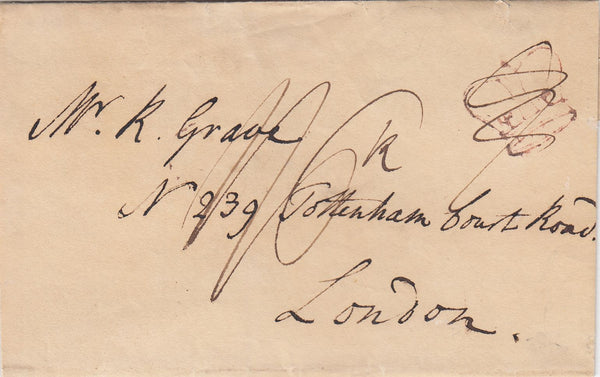 Mr. R. Grave
k
N 239 Tottenham Court Road.
London.